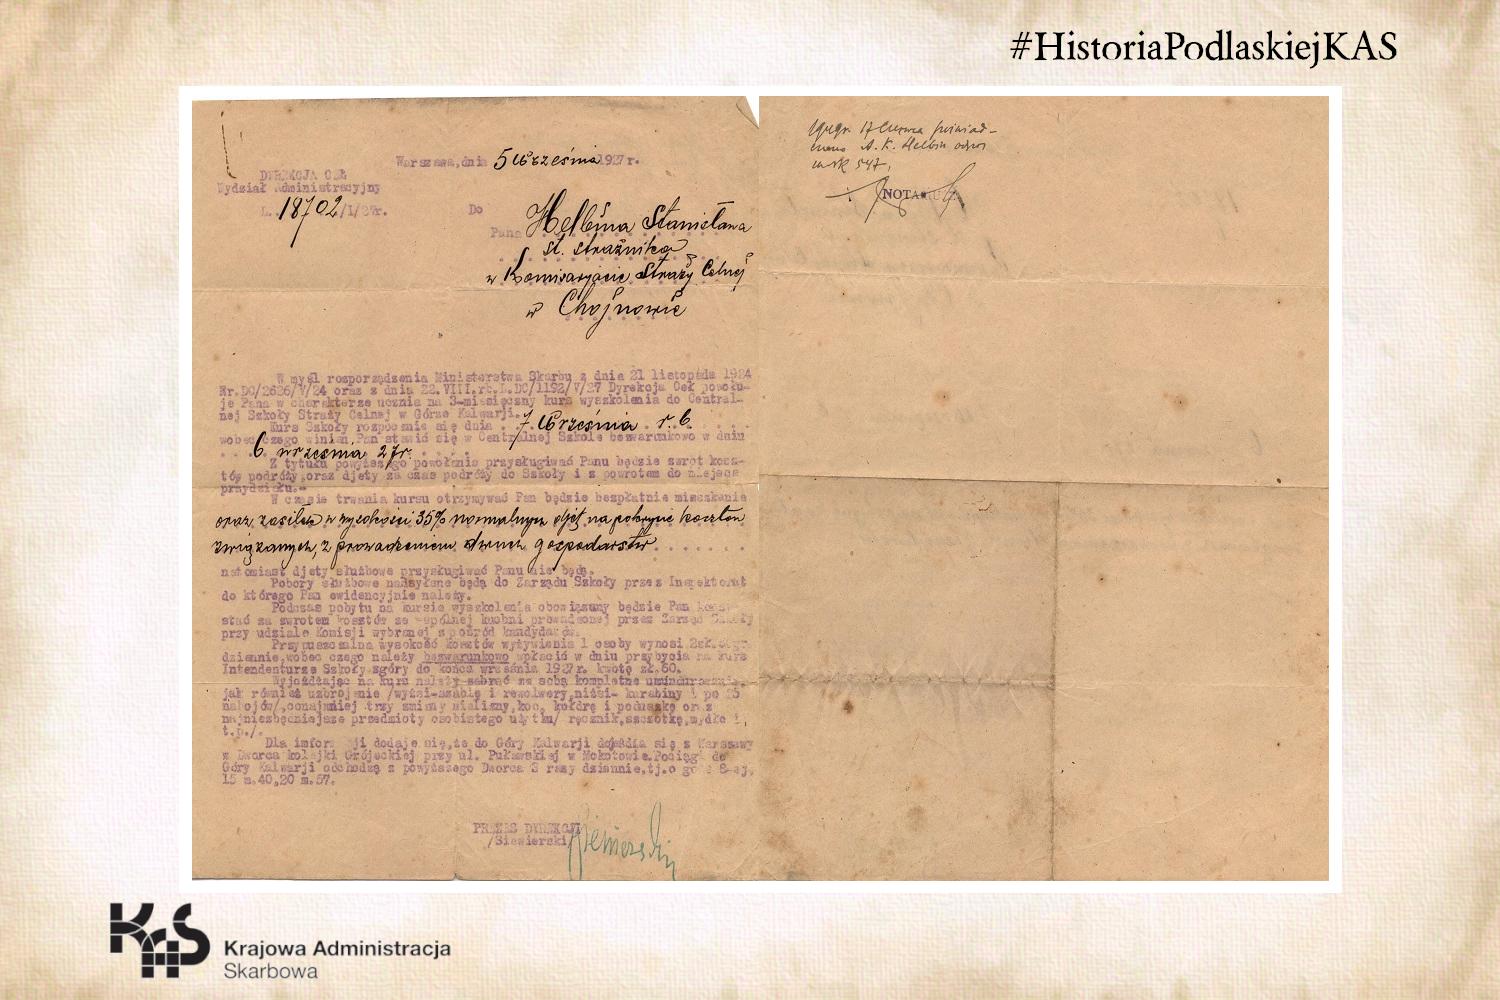 #HistoriaPodlaskiejKAS
Warszawa,dnia 5 września 1927 r.
DYREKCJA CEŁ
Wydział Administracyjny
L. 18702/I/27r.
Do
Pana Helbina Stanisława
st. strażnika
w Komisarjacie Straży Celnej
w Chojnowie
W myśl rozporządzenia Ministerstwa Skarbu z dnia 21 listopada 1924
Nr.DC/2626/V/24 oraz z dnia 22.VIII.rb.L.DC/1192/V/27 Dyrekcja Ceł powołu-
je Pana w charakterze ucznia na 3-miesięczny kurs wyszkolenia do Central-
nej Szkoły Straży Celnej w Górze Kalwarji.
Kurs Szkoły rozpocznie się dnia 7 września r. b.
wobec czego winien Pan stawić się w Centralnej Szkole bezwarunkowo w dniu
6 września 27r.
Z tytułu powyższego powołania przysługiwać Panu będzie zwrot kosz-
tów podróży,oraz djety za czas podróży do Szkoły i z powrotem do miejsca
przydziału.-
W czasie trwania kursu otrzymywać Pan będzie bezpłatnie mieszkanie
oraz zasiłek w wysokości 35% normalnych djet na pokrycie kosztów
związanych, z prowadzeniem dwuch gospodarstw
natomiast djety służbowe przysługiwać Panu nie będą.
Pobory służbowe nadsyłane będą do Zarządu Szkoły przez Inspektorat
do którego Pan ewidencyjnie należy.
Podczas pobytu na kursie wyszkolenia obowiązany będzie Pan korzy-
stać za zwrotem kosztów ze wspólnej kuchni prowadzonej przez Zarząd Szkoły
przy udziale Komisji wybranej z pośród kandydatów.
Przypuszczalna wysokość kosztów wyżywienia 1 osoby wynosi 2zł.
dziennie,wobec czego należy bezwarunkowo wpłacić w dniu przybycia na kurs
Intendenturze Szkoły zgóry do końca września 1927r. kwotę zł.60.
Wyjeżdżając na kurs należy zabrać ze sobą kompletne umundurowanie
jak również uzbrojenie /wyżsi-szable i rewolwery,niżsi- karabiny i po 15
nabojów/,conajmniej trzy zmiany bielizny,koc, kołdrę i poduszkę oraz
najniezbędniejsze przedmioty osobistego użytku/ ręcznik,szczotkę,mydło i
t.p./.
Dla informacji dodaje się,że do Góry Kalwarji dojeżdża się z Warszawy
w Dworca kolejki Grójeckiej przy ul. Puławskiej w Mokotowie.Pociągi do
Góry Kalwarji odchodzą z powyższego Dworca 3 razy dziennie,tj.o godz 8-ej,
15 m.40,20 m.57.
PREZES DYREKCJI
/Siewierski/
Siewierski
17 Czerwca
A. K. Helbin
547.
NOTARJUSZ
KAS
Krajowa Administracja
Skarbowa